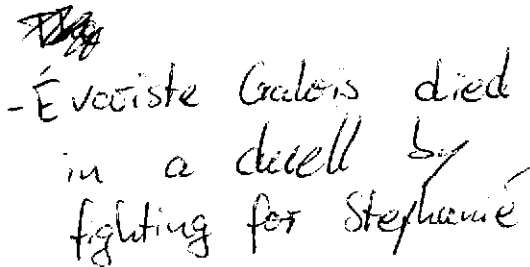 -Évariste Galois died
in a duell by
fighting for Stephanié